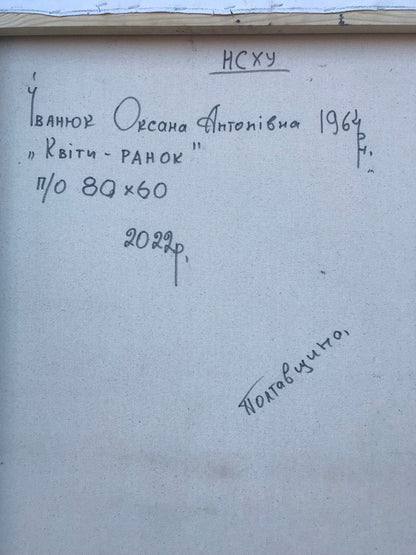 НСХУ
Іванюк Оксана Антонівна 1964 р.н.
„Квіти - РАНОК"
п/о 80х60
2022р.
Полтавщина.